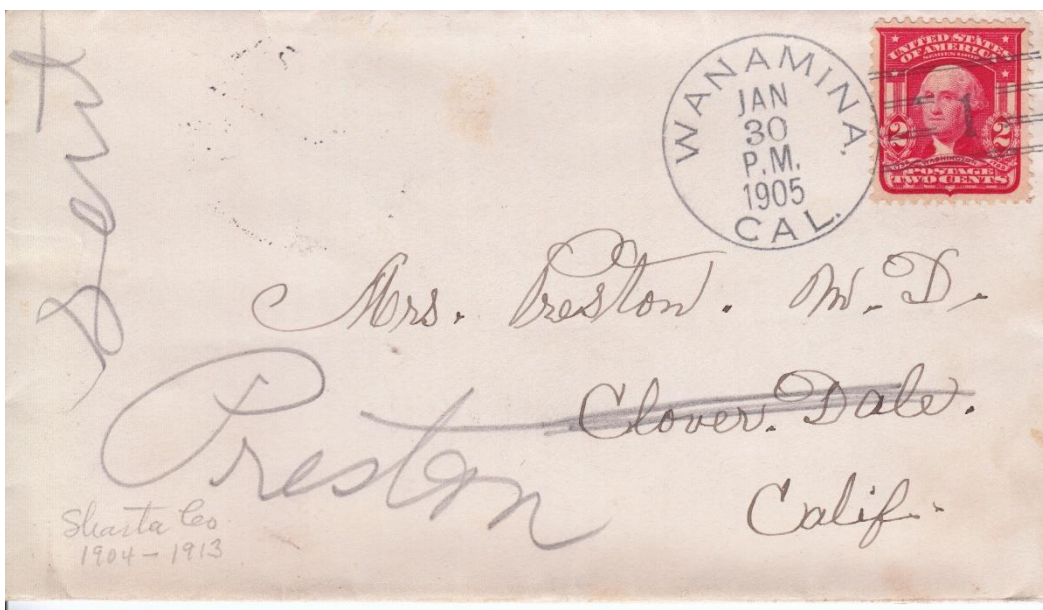 Sent
WANAMINA,
JAN
30
P.M.
1905
CAL.
UNITED STATES
OF AMERICA
SERIES 1902
2 2
WASHINGTON
POSTAGE
TWO CENTS
1
Mrs. Preston. M. D.
Clover. Dale.
Preston
Calif.
Shasta Co
1904 - 1913